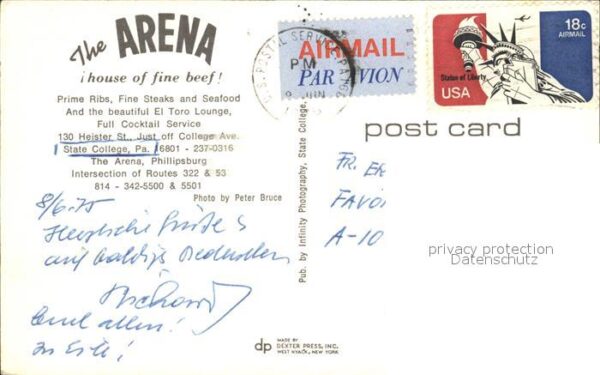 The ARENA
¡ house of fine beef !
Prime Ribs, Fine Steaks and Seafood
And the beautiful El Toro Lounge,
Full Cocktail Service
130 Heister St., Just off College Ave.
State College, Pa. 16801 - 237-0316
The Arena, Phillipsburg
Intersection of Routes 322 & 53
814 - 342-5500 & 5501
Photo by Peter Bruce
8/6.75
Herzliche Grüße &
auf baldiges Wiedersehen
auch allen!
In Eile!
Pub. by Infinity Photography, State College,
dp MADE BY
DEXTER PRESS, INC.
WEST NYACK, NEW YORK
U.S. POSTAL SERVICE PA
PM
JUN
AIRMAIL
PAR AVION
18c
AIRMAIL
Statue of Liberty
USA
post card
FR.
FAVO
A-10
privacy protection
Datenschutz